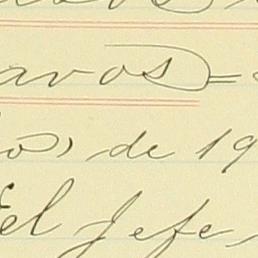 avos=
o, de 19
El Jefe,